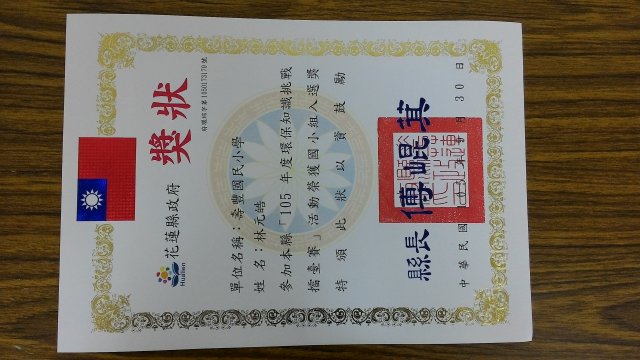 花蓮縣政府
Hualien
獎狀
府環綜字第1050173170號
單位名稱：壽豐國民小學
姓名：林元皓
參加本縣「105 年度環保知識挑戰
擂臺賽」活動榮獲國小組入選獎
特頒此狀以資鼓勵
縣長 傅崐萁
中華民國 月30日